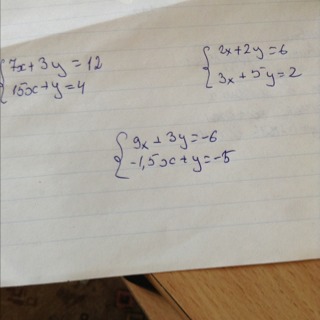 7x+3y=12
15x+y=4
2x+2y=6
3x+5y=2
9x+3y=-6
-1,5x+y=-5